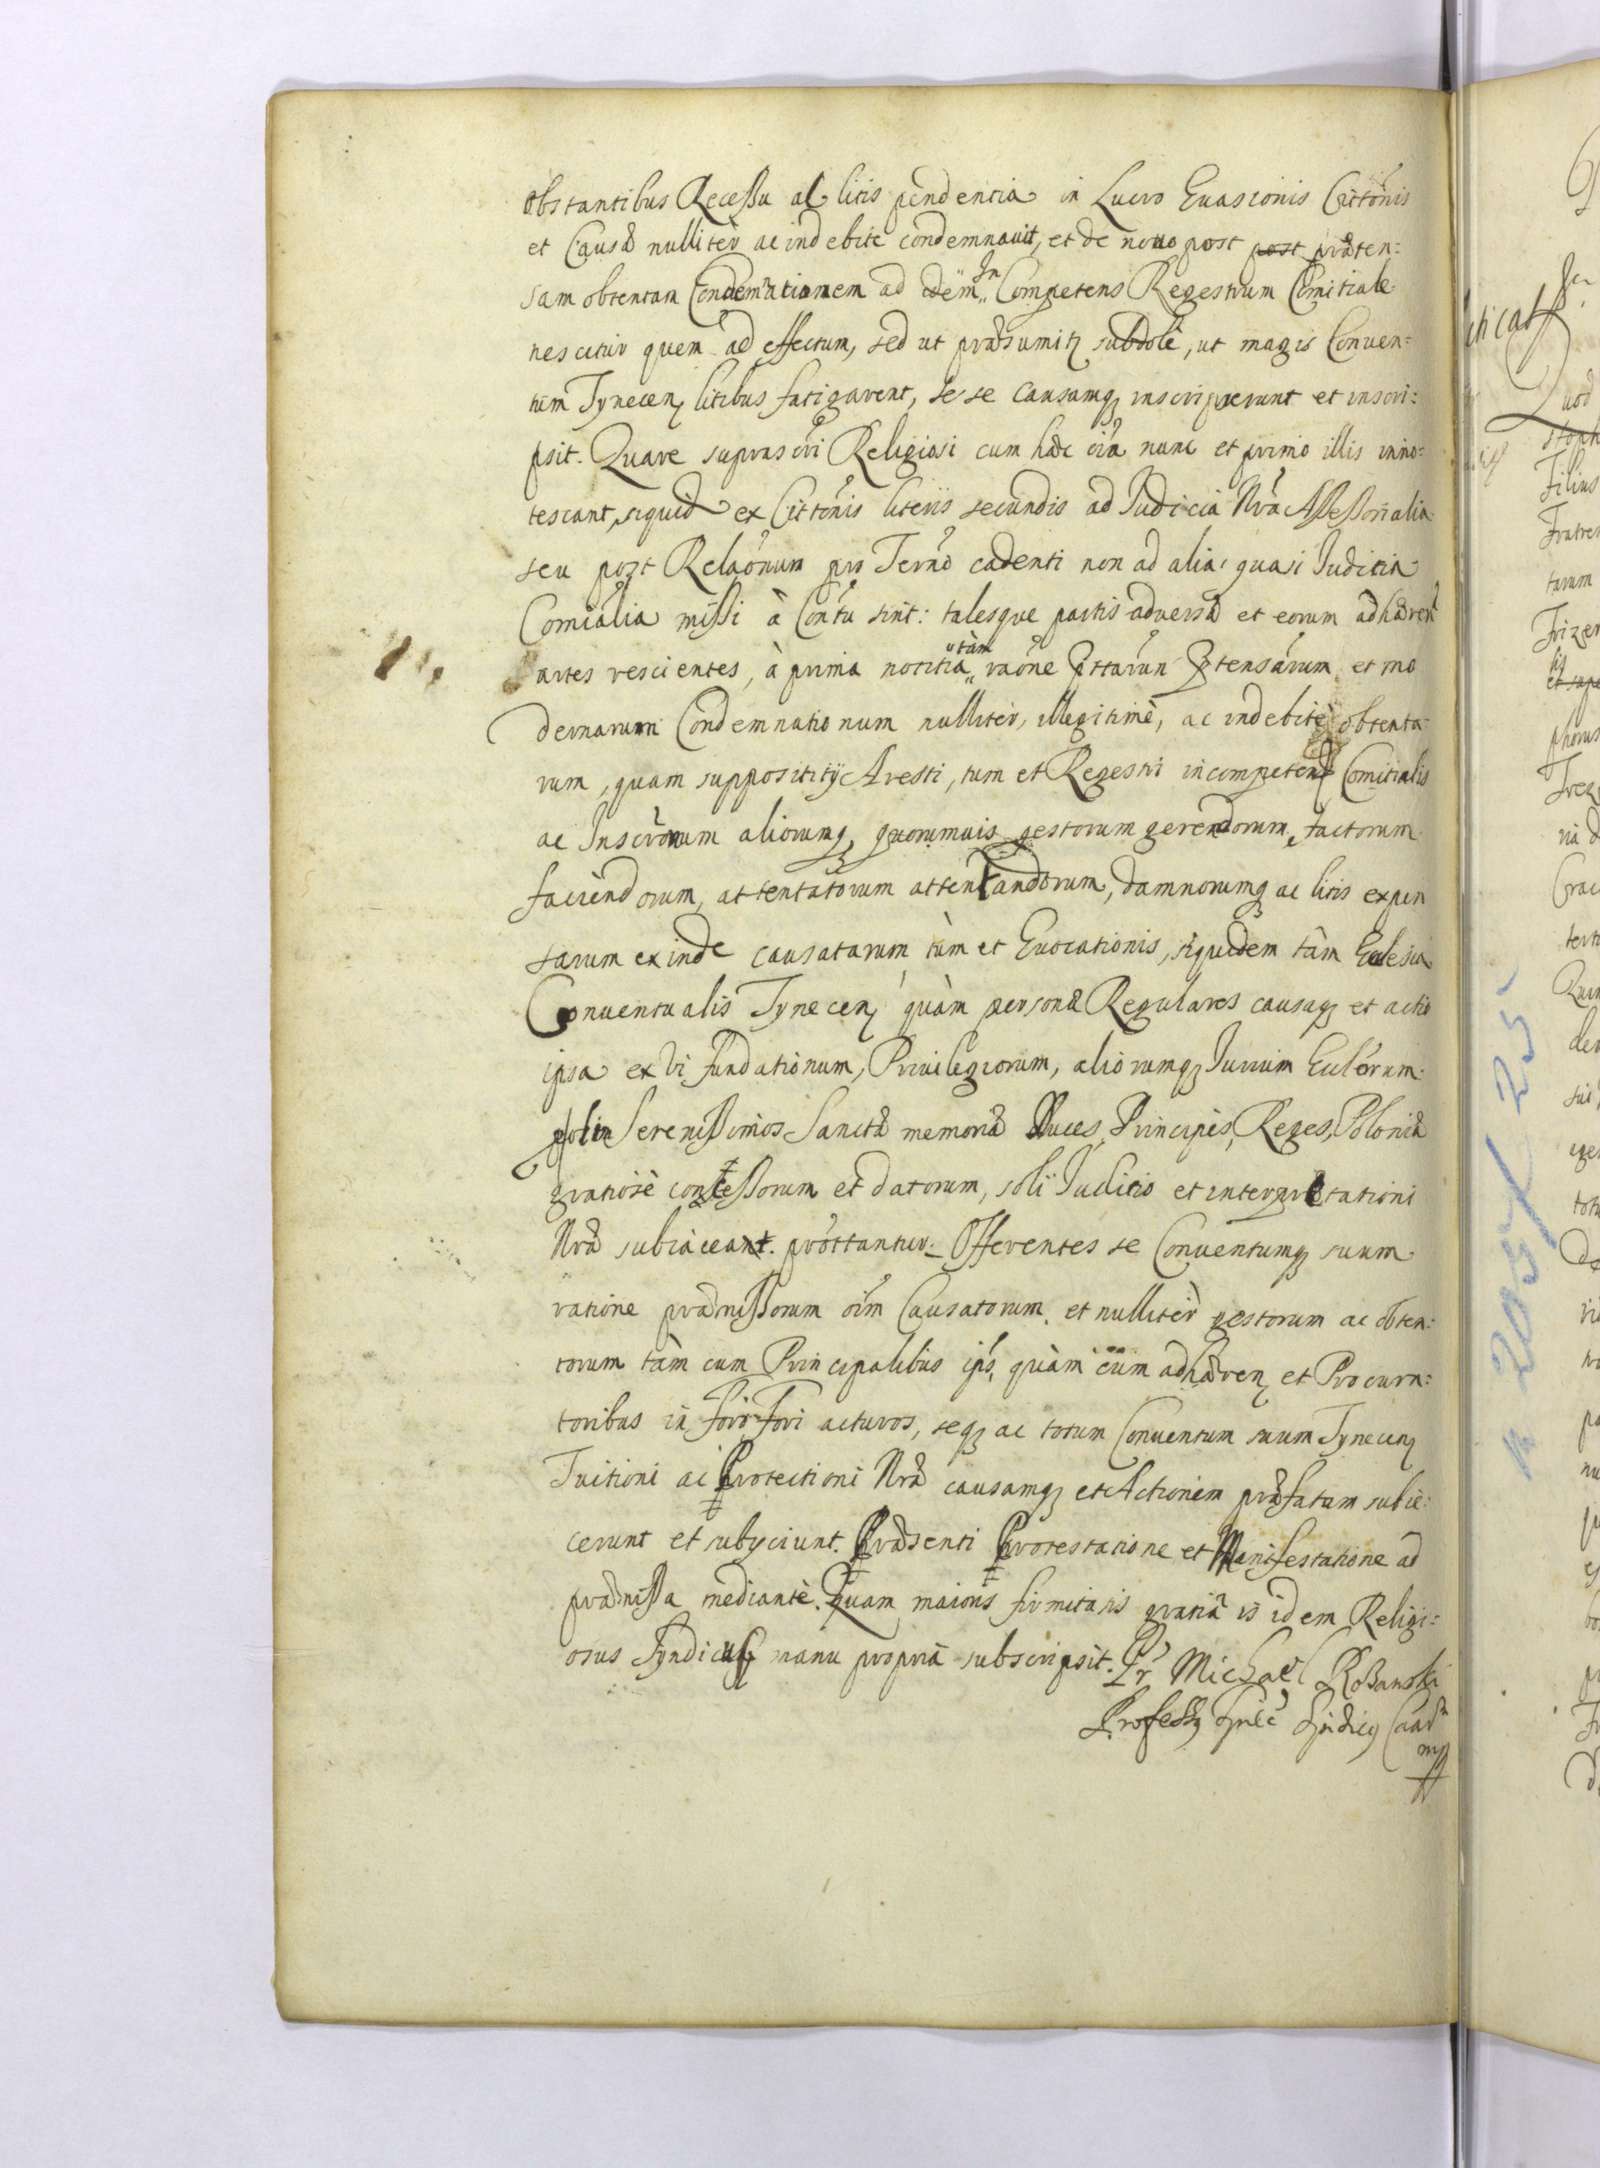 obstantibus Recessu al litis pendentia in Lucro Euasionis Cittõnis
et Causæ nullitèr ac indebite condemnauit, et de nouo post post præten:
sam obtentam Condemnationem ad idem In Competens Regestrum Comitiale
nescitur quem ad effectum, sed ut præsumitz subdolè, ut magis Conuen:
tum Tynecen litibus fatigarent, se se causamq inscripserunt et inscri:
psit. Quare suprascri Religiosi cum hæc oia nunc et primo illis inno:
tescant, siquid ex Cittõnis literis secundis ad Judicia Nra Assessorialia
seu post Relaõnum pro Termo cadenti non ad alia quasi Judicia
Comialia missi à Contu sint: talesque partis aduersæ et eorum adhæren
artes rescientes, à prima notitia tàm raõne prttarum prtensarum et mo
dernarum Condemnationum nullitèr, illegitimè, ac indebitè obtenta:
rum, quam suppositity Aresti, tum et Regestri incompeten Comitialis
ac Inscrõnum aliorumq quorumuis gestorum gerendorum, factorum
faciendorum, attentatorum attentandorum, damnorumq ac litis expen
sarum exinde causatarum tùm et Euocationis, siquidem tàm Eclesia
Conuentualis Tynecen quàm personæ Regulares causaq et actio
ipsa ex Vi fundationum, Priuilegiorum, aliorumq Jurium Ecclerum
p olim Serenissimos Sanctæ memoriæ Duces, Principes, Reges, Poloniæ
gratiosè concessorum et datorum, soli Judicio et interpretationi
Nræ subiaceant. prottantur. Offerentes se Conuentumq suum
ratione præmissorum oim Causatorum et nullitèr gestorum ac obten:
torum tàm cum Principalibus ips, quàm cum adhæren et Procura:
toribus in foro fori acturos, seq ac totum Conuentum suum Tynecen
Tuitioni ac Protectioni Nræ causamq et Actionem præfatam subie:
cerunt et subyciunt. Præsenti Protestatione et Manifestatione ad
præmissa mediantè. Quam maioris firmitatis gratiâ is idem Religi:
osus Syndicus manu propriâ subscripsit. Pr Michael Rosanski
Professq Tyne Syndicq
mp